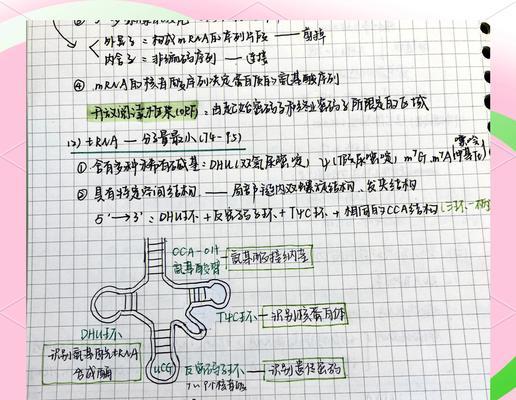 外显子 = 构成mRNA的序列片段 —— 剪接
内含子 = 非编码序列 —— 连接
④ mRNA的核苷酸序列决定蛋白质的氨基酸序列
开放阅读框架(ORF): 由起始密码子和终止密码子所限定的区域
(2) tRNA — 分子量最小(74-95)
① 含有多种稀有碱基: DHU(双氢尿嘧啶), ψ(假尿嘧啶), m⁷G, m⁷A
② 具有特定空间结构 —— 局部链内双螺旋结构, 发夹结构
5'→3': DHU环 + 反密码子环 + TψC环 + 相同的CCA结构 (三环一柄
CCA-OH
氨基酸臂 氨基酸接纳茎
TψC环 — 识别核蛋白体
DHU环
识别氨基酰tRNA
合成酶
UCG 反密码子环 — 识别遗传密码